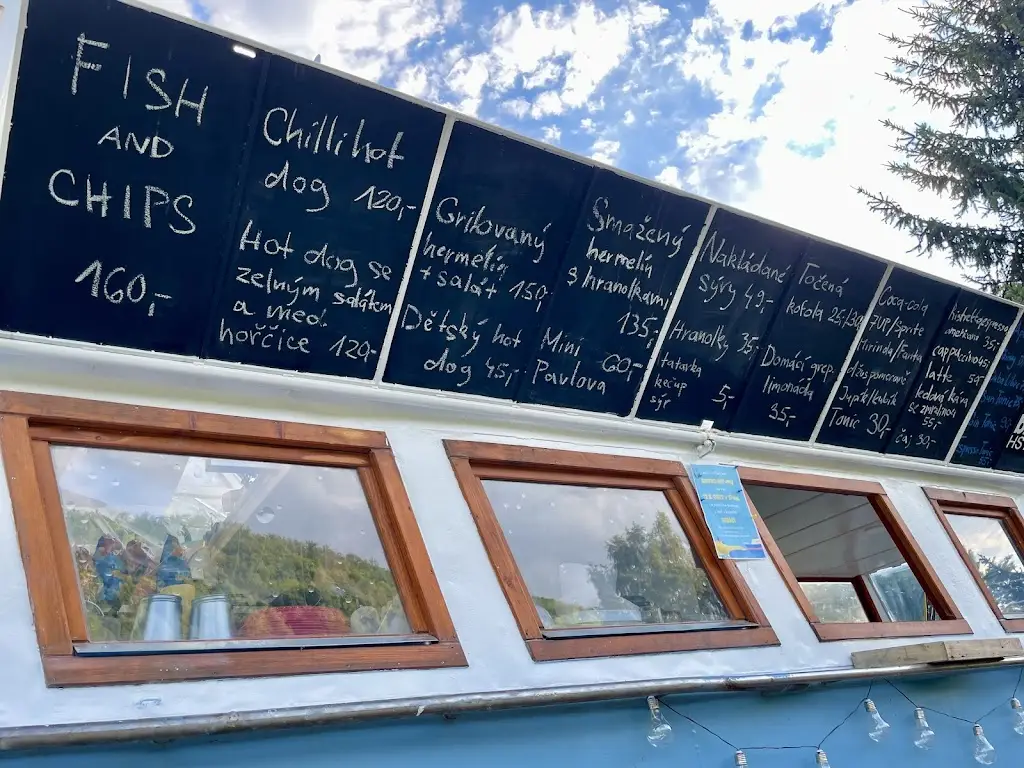 FISH
AND
CHIPS
160,-
Chilli hot
dog 120,-
Hot dog se
zelným salátem
a med.
hořčice 120,-
Grilovaný
hermelín
+ salát 150,-
Dětský hot
dog 45,-
Smažený
hermelín
s hranolkami
135,-
Mini 60,-
Pavlova
Nakládané
sýry 49,-
Hranolky 35,-
tatarka
kečup
sýr 5,-
Točená
kofola 25,/30,
Domácí grep.
limonada
35,-
Coca-cola
7UP/Sprite
Mirinda/Fanta
džus pomeranč
Tonic 30,-
35,-
cappuccino 45,-
latte
ledová káva
se zmrzlinou
55,-
čaj 30,-